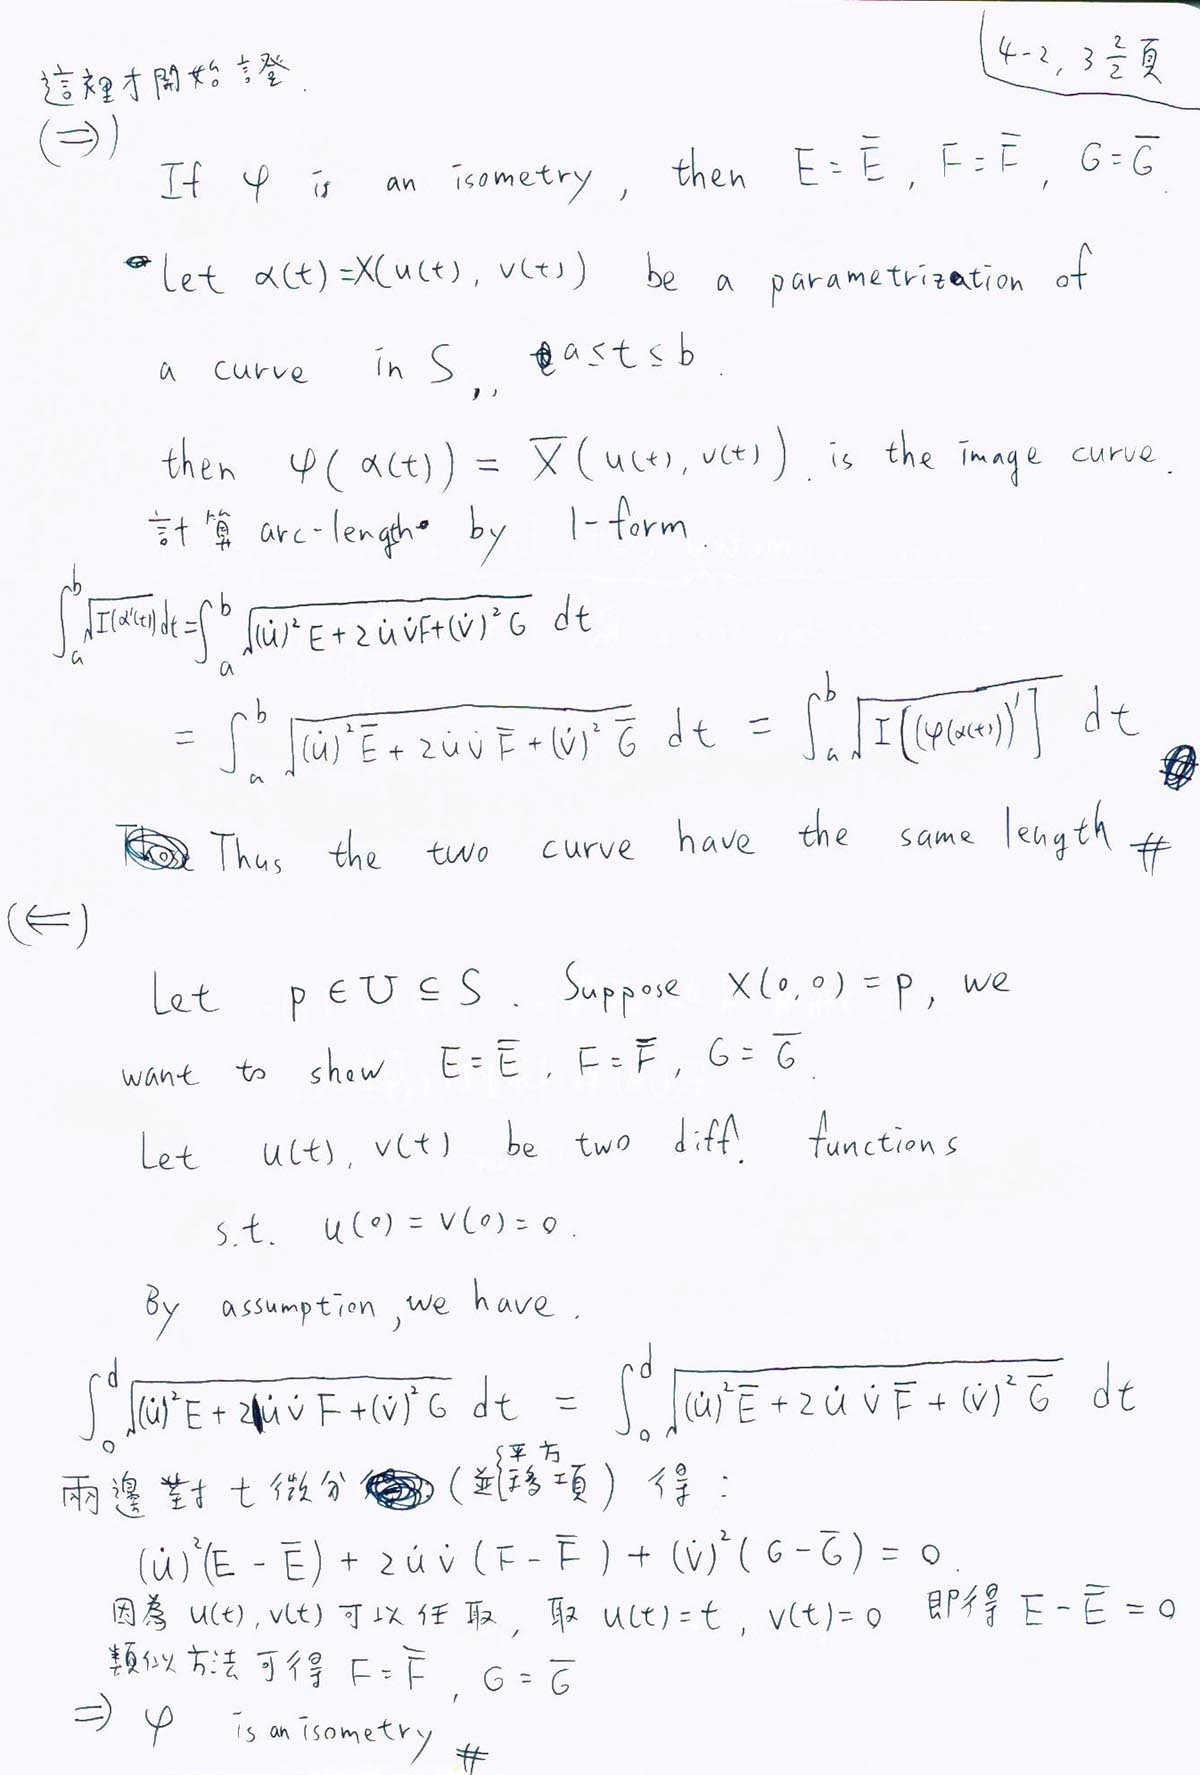 4-2, 3 2/2 頁
這裡才開始證.
(⇒)
If φ is an isometry, then E = Ē, F = F̄, G = Ḡ.
Let α(t) = X(u(t), v(t)) be a parametrization of
a curve in S, a ≤ t ≤ b.
then φ(α(t)) = X̄(u(t), v(t)) is the image curve.
計算 arc-length by 1-form.
∫_a^b √(I(α'(t))) dt = ∫_a^b √((u̇)² E + 2 u̇ v̇ F + (v̇)² G) dt
= ∫_a^b √((u̇)² Ē + 2 u̇ v̇ F̄ + (v̇)² Ḡ) dt = ∫_a^b √(I[(φ(α(t)))']) dt
Thus the two curve have the same length #
(⇐)
Let p ∈ U ⊆ S. Suppose X(0,0) = p, we
want to show E = Ē, F = F̄, G = Ḡ.
Let u(t), v(t) be two diff. functions
s.t. u(0) = v(0) = 0.
By assumption, we have.
∫_0^d √((u̇)² E + 2 u̇ v̇ F + (v̇)² G) dt = ∫_0^d √((u̇)² Ē + 2 u̇ v̇ F̄ + (v̇)² Ḡ) dt
兩邊對 t 微分 (並{平方 移項) 得:
(u̇)² (E - Ē) + 2 u̇ v̇ (F - F̄) + (v̇)² (G - Ḡ) = 0.
因為 u(t), v(t) 可以任取, 取 u(t) = t, v(t) = 0 即得 E - Ē = 0
類似方法可得 F = F̄, G = Ḡ
⇒ φ is an isometry #